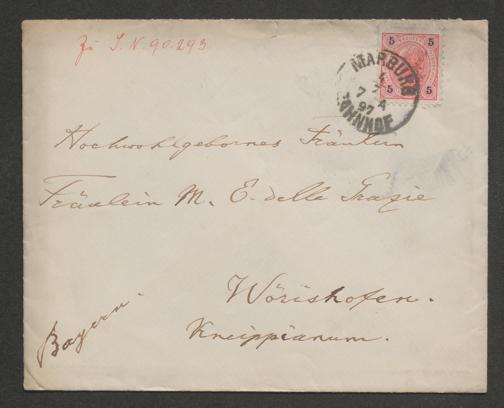 Zu I.N. 90.293
5 5
5 5
MARBURG
7 4
97
BAHNHOF
Hochwohlgebornes Fräulein
Fräulein M. E. delle Grazie
Wörishofen.
Kneippianum.
Bayern.